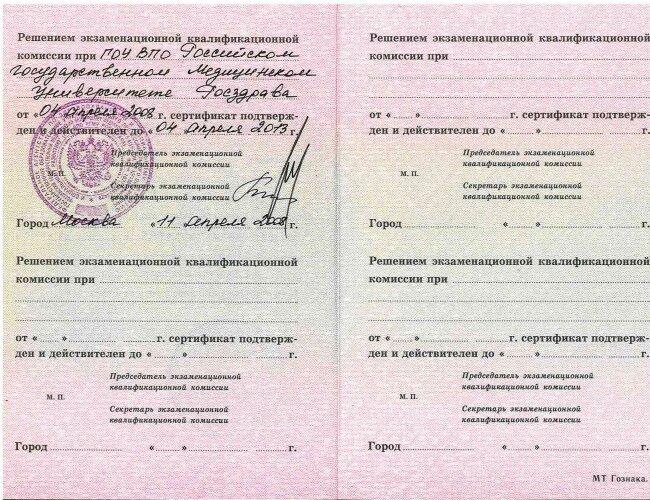 Решением экзаменационной квалификационной
комиссии при ГОУ ВПО Российском
государственном Медицинском
Университете Росздрава
от «04 апреля 2008 г. сертификат подтверж-
ден и действителен до «04 апреля 2013 г.
Председатель экзаменационной
квалификационной комиссии
М. П.
Секретарь экзаменационной
квалификационной комиссии
Город Москва «11 апреля 2008 г.
Решением экзаменационной квалификационной
комиссии при
от « » г. сертификат подтверж-
ден и действителен до « » г.
Председатель экзаменационной
квалификационной комиссии
М. П.
Секретарь экзаменационной
квалификационной комиссии
Город « » г.
Решением экзаменационной квалификационной
комиссии при
от « » г. сертификат подтверж-
ден и действителен до « » г.
Председатель экзаменационной
квалификационной комиссии
М. П.
Секретарь экзаменационной
квалификационной комиссии
Город « » г.
Решением экзаменационной квалификационной
комиссии при
от « » г. сертификат подтверж-
ден и действителен до « » г.
Председатель экзаменационной
квалификационной комиссии
М. П.
Секретарь экзаменационной
квалификационной комиссии
Город « » г.
МТ Гознака.